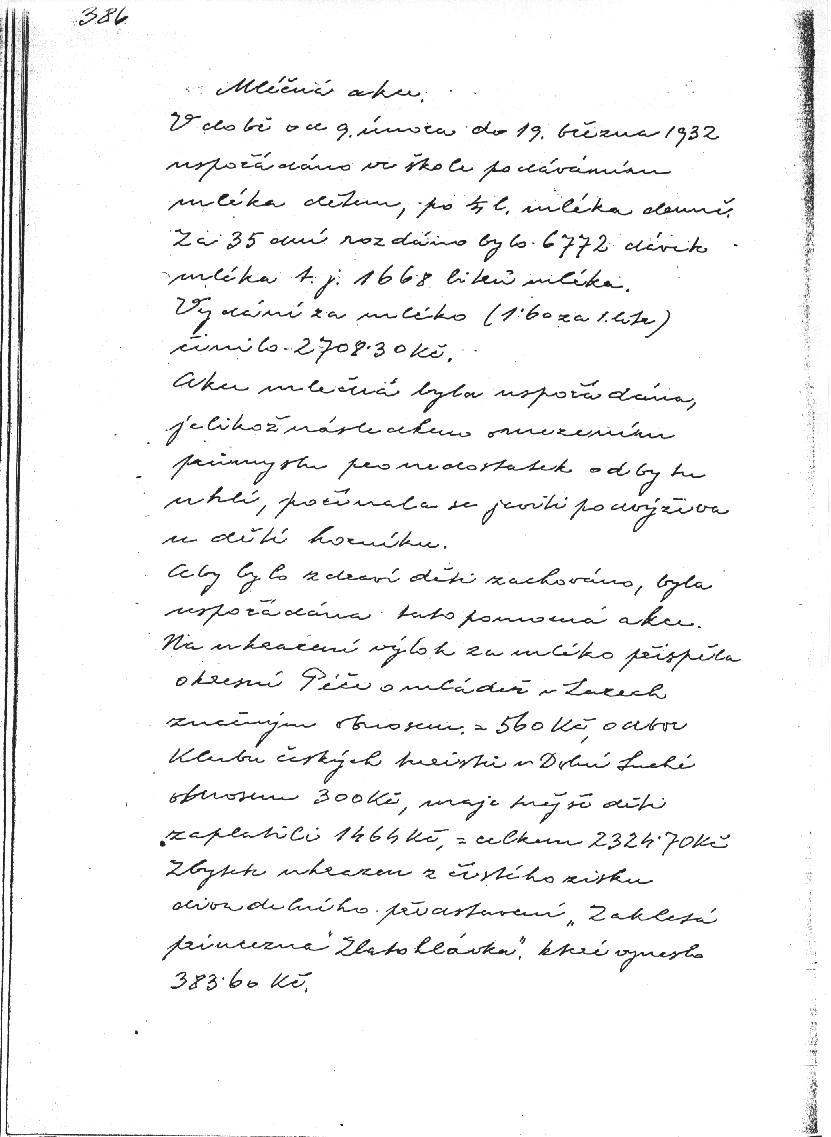 386
Mléčná akce.
V době od 9. února do 19. března 1932
uspořádáno ve škole podáváním
mléka dětem, po ¼ l. mléka denně.
Za 35 dní rozdáno bylo 6772 dávek
mléka t. j. 1668 litrů mléka.
Vydání za mléko (1·60 za 1 litr)
činilo 2708·30 Kč.
Akce mléčná byla uspořádána,
jelikož následkem omezením
průmyslu pro nedostatek odbytu
uhlí, počínala se jeviti podvýživa
u dětí horníků.
Aby bylo zdraví dětí zachováno, byla
uspořádána tato pomocná akce.
Na uhrazení výloh za mléko přispěla
okresní Péče o mládež v Lazech
značným obnosem = 560 Kč, odbor
Klubu českých turistů v Dolní Suché
obnosem 300 Kč, majetnější děti
zaplatili 1464 Kč, = celkem 2324·70 Kč
Zbytek uhrazen z čistého zisku
divadelního představení „Zakletá
princezna Zlatohlávka“, které vyneslo
383·60 Kč.